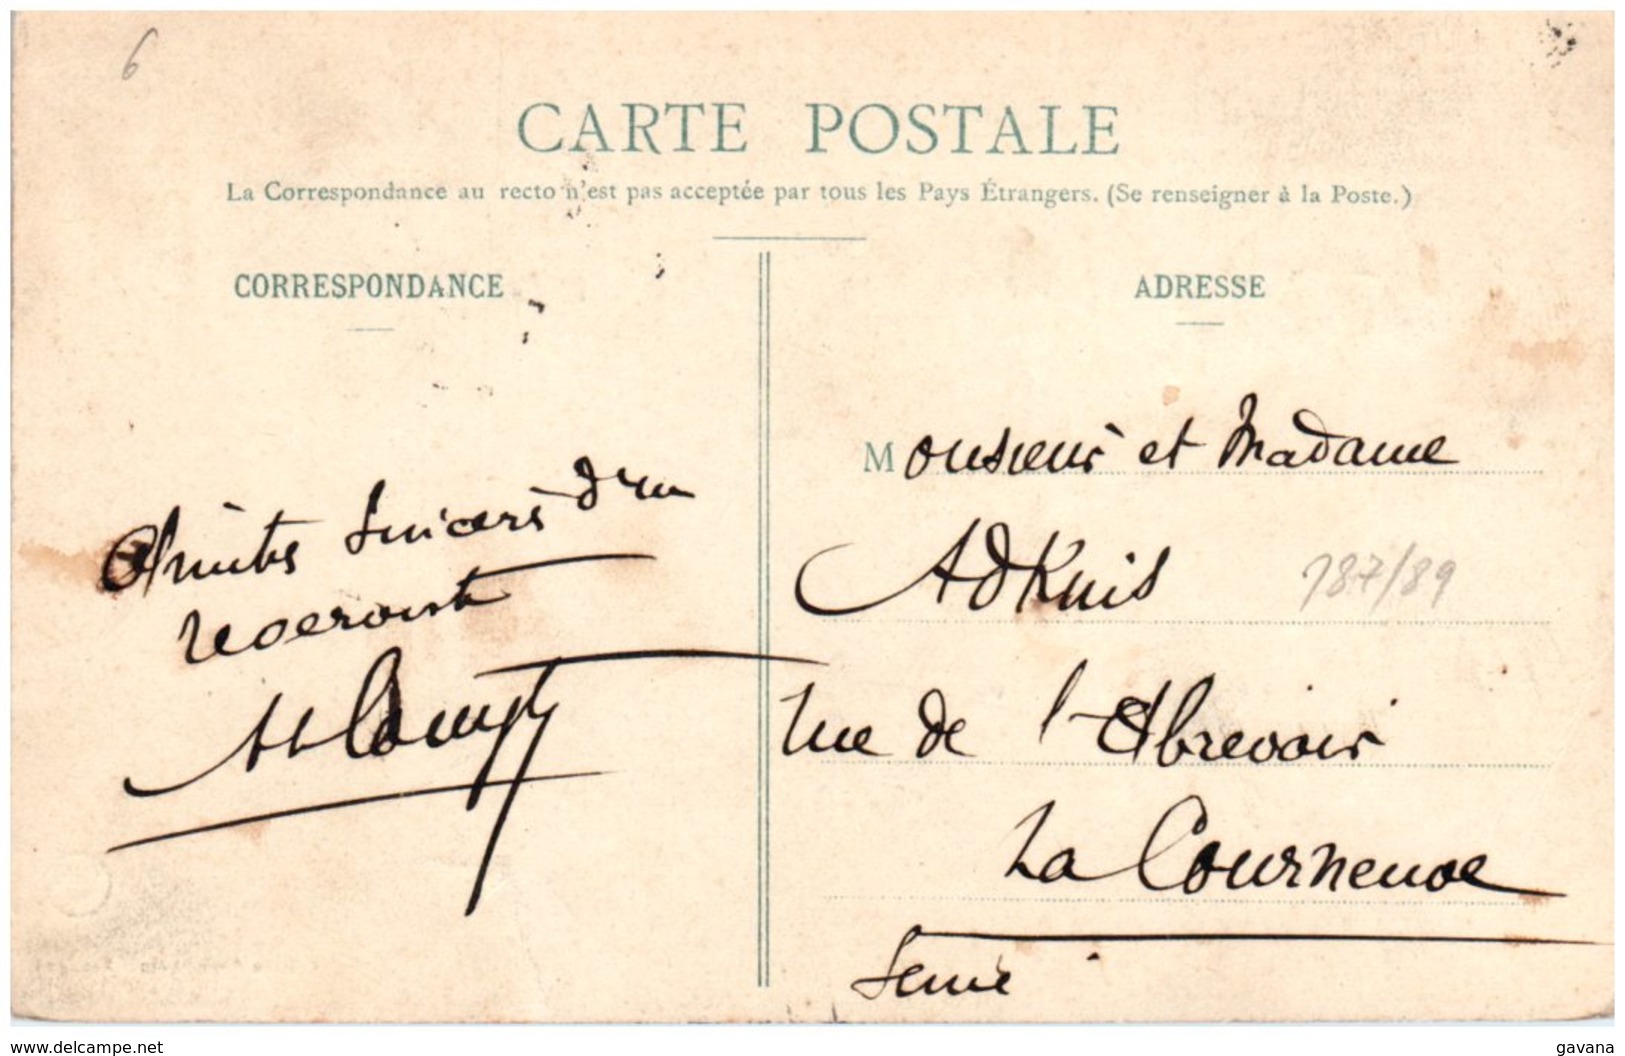 6
CARTE POSTALE
La Correspondance au recto n'est pas acceptée par tous les Pays Étrangers. (Se renseigner à la Poste.)
CORRESPONDANCE
Amitiés sincères d'un
ADRESSE
Monsieur et Madame
Adknis
187/89
rue de l'Abrevoir
La Courneuve
Seine
www.delcampe.net
gavana